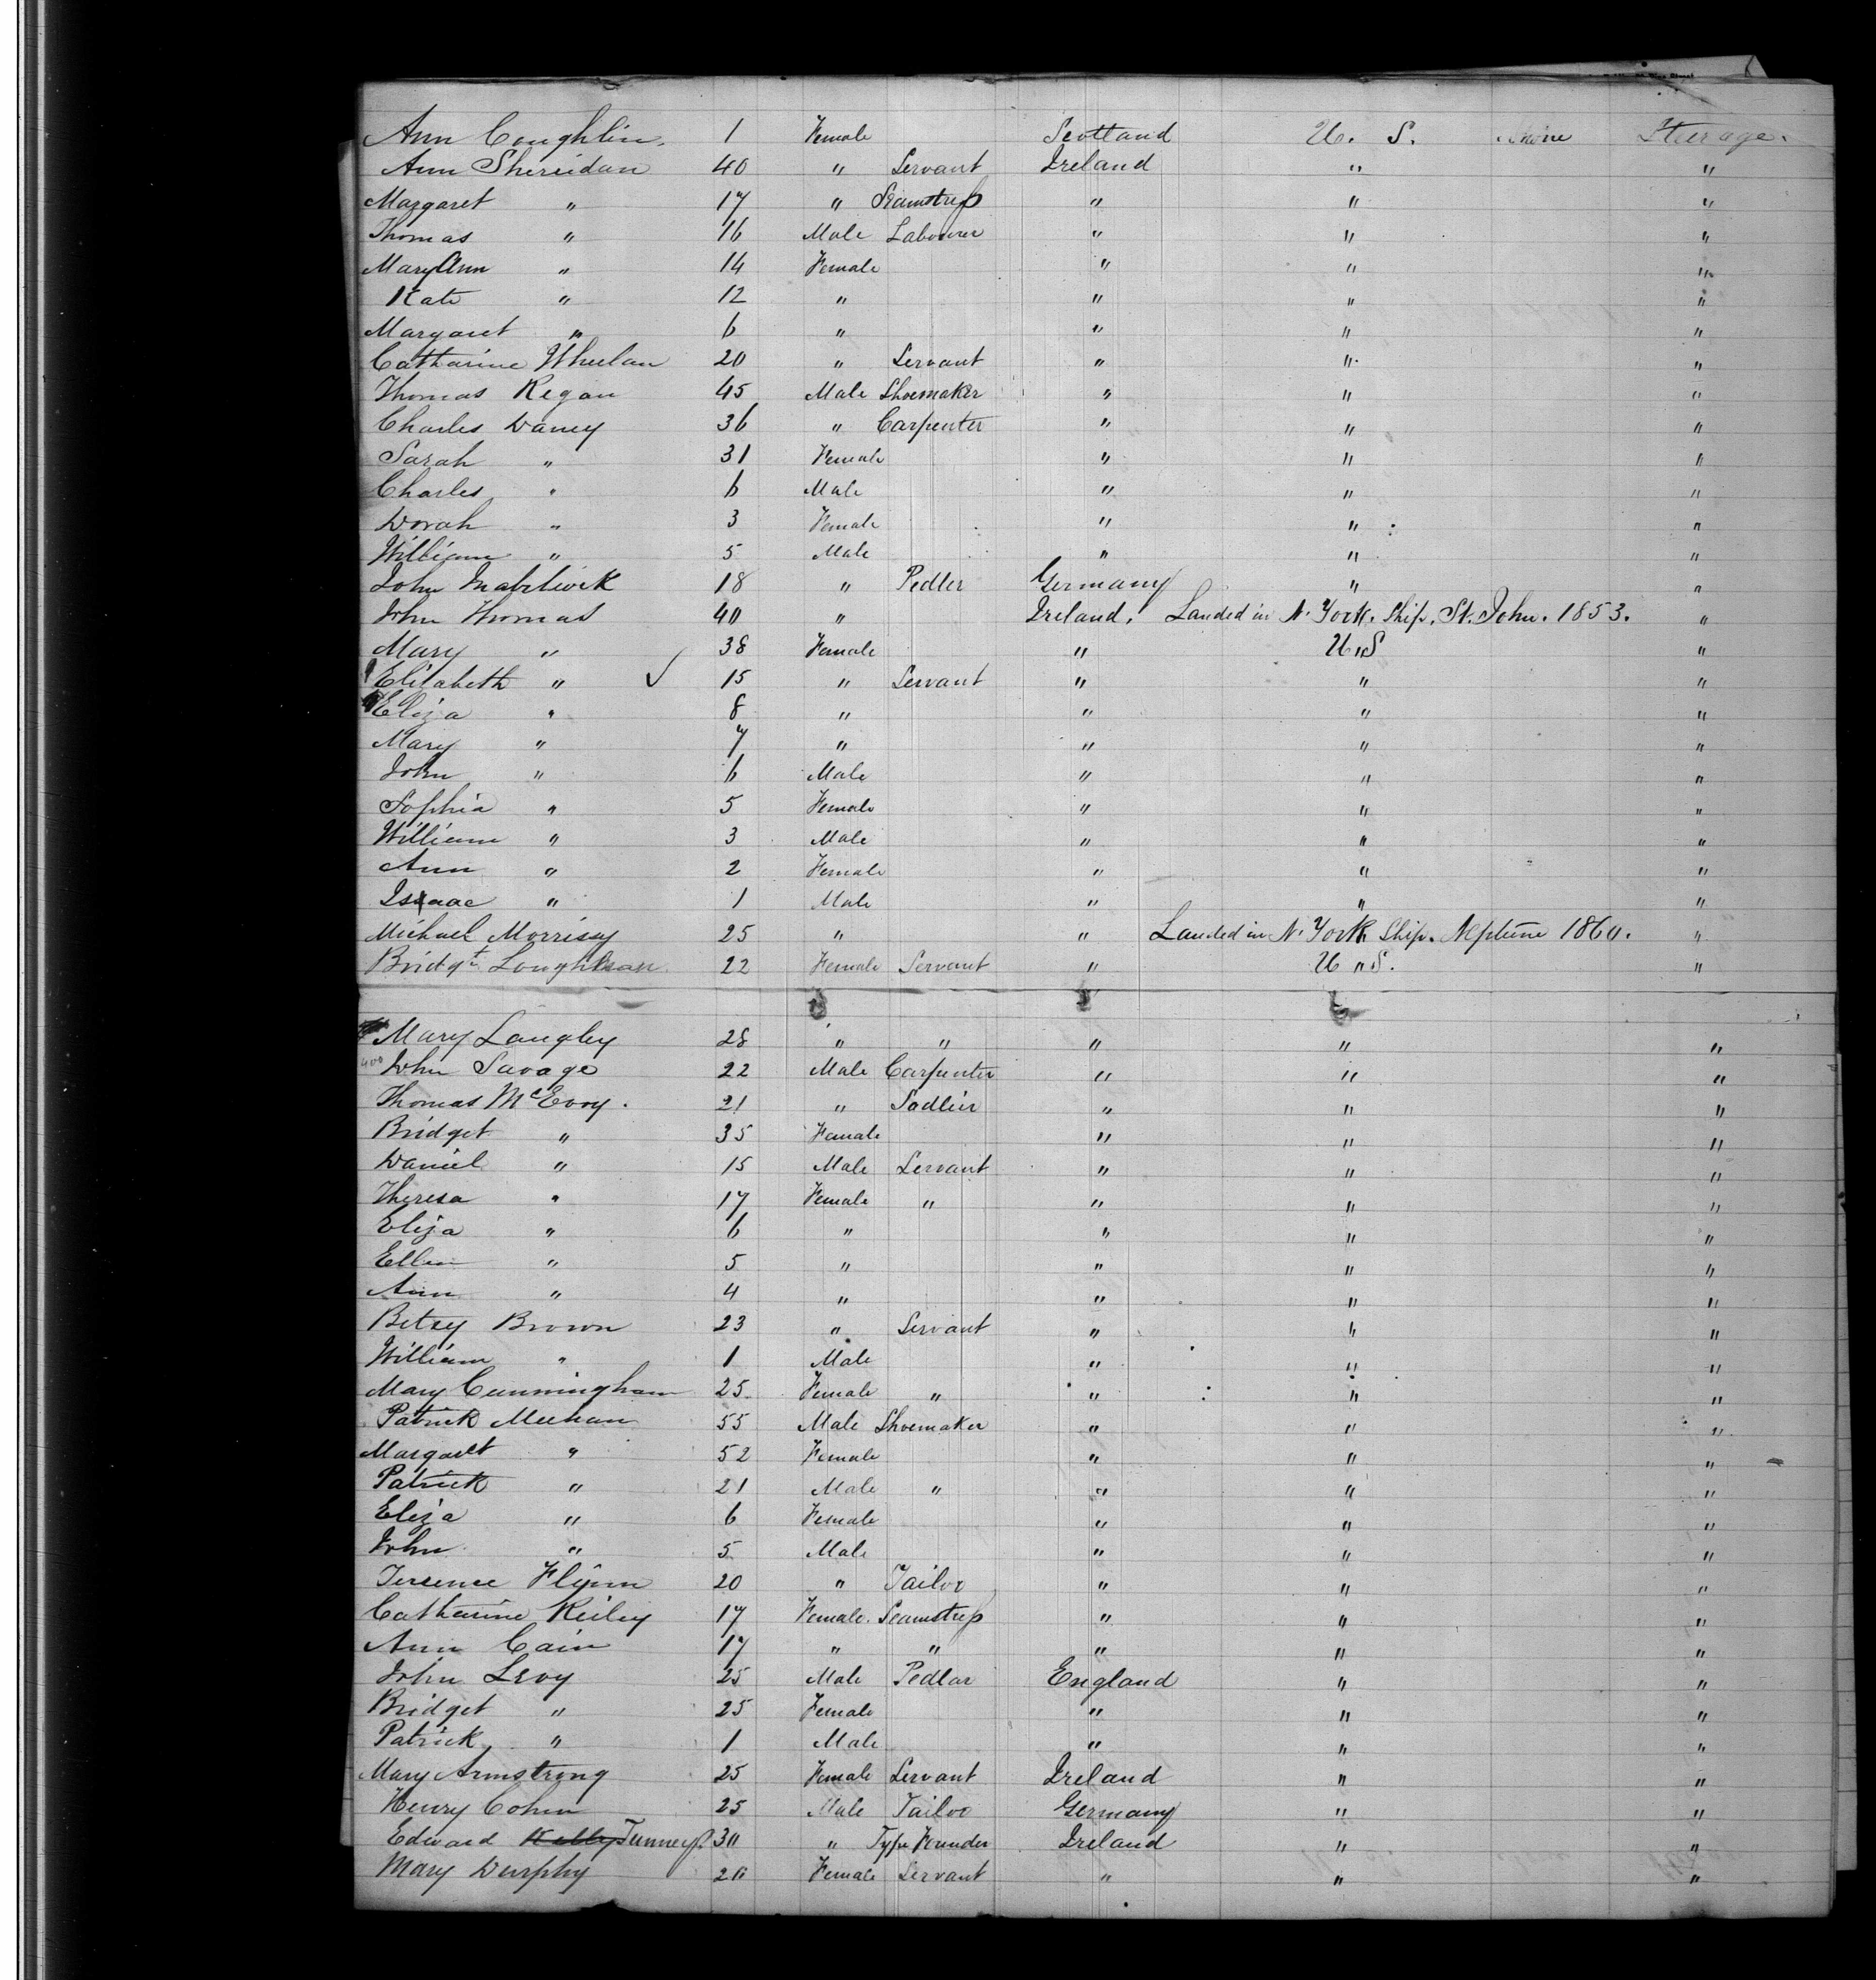 Ann Coughlin. 1 Female Scotland U. S. None Steerage.
Ann Shereidan 40 " Servant Ireland " "
Margaret " 17 " Seamstress " " "
Thomas " 16 Male Labourer " " "
Mary Ann " 14 Female " " "
Kate " 12 " " " "
Margaret " 6 " " " "
Catharine Wheelan 20 " Servant " " "
Thomas Regan 45 Male Shoemaker " " "
Charles Daney 36 " Carpenter " " "
Sarah " 31 Female " " "
Charles " 6 Male " " "
Dorah " 3 Female " " "
William " 5 Male " " "
John 18 " Pedler Germany " "
John Thomas 40 " Ireland. Landed in N. York. Ship. St. John. 1853. "
Mary " 38 Female " U S "
Elizabeth " ✓ 15 " Servant " " "
Eliza " 8 " " " "
Mary " 7 " " " "
John " 6 Male " " "
Sophia " 5 Female " " "
William " 3 Male " " "
Ann " 2 Female " " "
Isaac " 1 Male " " "
Michael Morrisy 25 " " Landed in N. York Ship. Neptune 1860. "
Bridgt Loughlan 22 Female Servant " U S. "
Mary Langley 28 " " " " "
400 John Savage 22 Male Carpenter " " "
Thomas McEvoy. 21 " Sadlier " " "
Bridget " 35 Female " " "
Daniel " 15 Male Servant " " "
Theresa " 17 Female " " " "
Eliza " 6 " " " "
Ellen " 5 " " " "
Ann " 4 " " " "
Betsy Brown 23 " Servant " " "
William " 1 Male " " "
Mary Cunningham 25 Female " " " "
Patrick Meehan 55 Male Shoemaker " " "
Margaret " 52 Female " " "
Patrick " 21 Male " " " "
Eliza " 6 Female " " "
John " 5 Male " " "
Terence Flynn 20 " Tailor " " "
Catharine Reiley 17 Female. Seamstress " " "
Ann Cain 17 " " " " "
John Levy 25 Male Pedlar England " "
Bridget " 25 Female " " "
Patrick " 1 Male " " "
Mary Armstrong 25 Female Servant Ireland " "
Henry Cohen 25 Male Tailor Germany " "
Edward Kelly Tunney 30 " Type Founder Ireland " "
Mary Durphy 20 Female Servant " " "